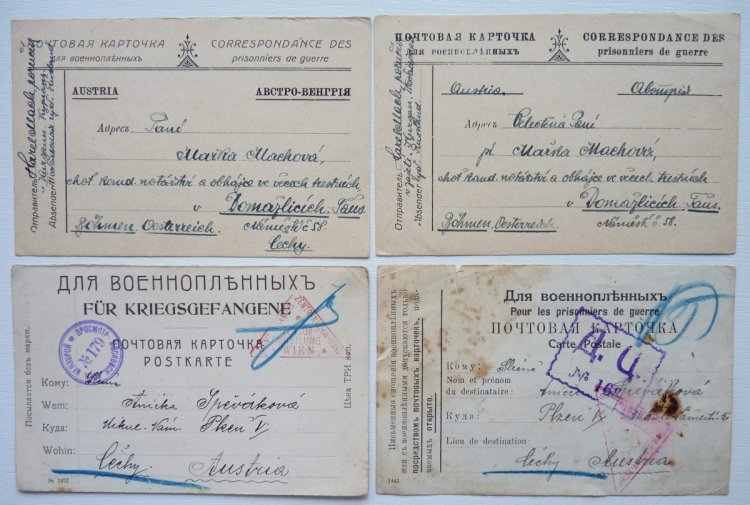 ПОЧТОВАЯ КАРТОЧКА
для военноплѣнныхъ
CORRESPONDANCE DES
prisonniers de guerre
AUSTRIA
АВСТРО-ВЕНГРІЯ
Адресъ Paní
Mařka Machová,
chot kand. notářství a obhájce ve věcech trestních
v Domažlicích-Taus
Böhmen, Oesterreich. Náměstí č 58.
Čechy.
Отправитель:
Absender: Karel Mach
ПОЧТОВАЯ КАРТОЧКА
для военноплѣнныхъ
CORRESPONDANCE DES
prisonniers de guerre
Austria. Австрія
Адресъ Paní
Mařka Machová,
chot kand. notářství a obhájce ve věcech trestních
v Domažlicích-Taus
Böhmen, Oesterreich. Náměstí č. 58.
Отправитель:
Absender: Karel Mach
ДЛЯ ВОЕННОПЛѢННЫХЪ
FÜR KRIEGSGEFANGENE
ПОЧТОВАЯ КАРТОЧКА
POSTKARTE
Посылается безъ марки.
Цѣна ТРИ коп.
№ 179
WIEN
Кому:
Wem: Špěváková
Куда: Plzeň
Wohin:
Čechy Austria
№ 1451
Для военноплѣнныхъ
Pour les prisonniers de guerre
ПОЧТОВАЯ КАРТОЧКА
Carte Postale
Д. Ц.
№ 162
Кому:
Nom et prénom
du destinataire: Špěváková
Куда: Plzeň
Lieu de destination:
Čechy Austria
Письменныя сношенія военноплѣнныхъ
допускаются только
посредствомъ почтовыхъ карточекъ, пода-
ваемыхъ открыто.
1441